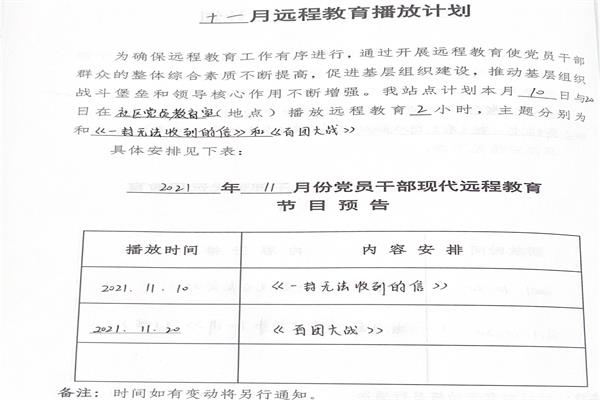 十一月远程教育播放计划
为确保远程教育工作有序进行，通过开展远程教育使党员干部
群众的整体综合素质不断提高，促进基层组织建设，推动基层组织
战斗堡垒和领导核心作用不断增强。我站点计划本月10日与20
日在社区党员教育室（地点）播放远程教育2小时，主题分别为
和《一封无法收到的信》和《百团大战》
具体安排见下表：
2021年11月份党员干部现代远程教育
节目预告
播放时间 内容安排
2021.11.10 《一封无法收到的信》
2021.11.20 《百团大战》
备注：时间如有变动将另行通知。